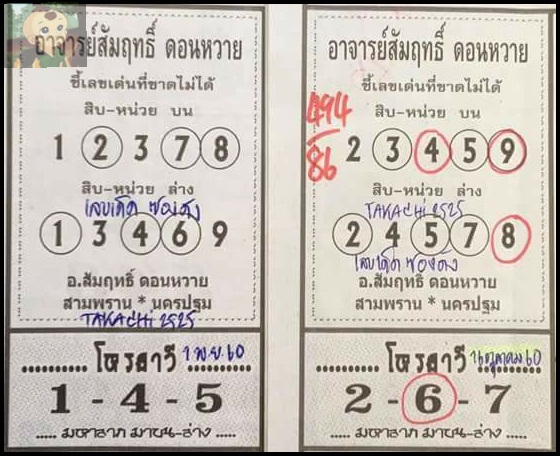 อาจารย์สัมฤทธิ์ ดอนหวาย
ชี้เลขเด่นที่ขาดไม่ได้
สิบ-หน่วย บน
1 2 3 7 8
สิบ-หน่วย ล่าง
เลขเด็ด ซองดัง
1 3 4 6 9
อ.สัมฤทธิ์ ดอนหวาย
สามพราน * นครปฐม
TAKACHI 2525
โหราวี
1 พ.ย. 60
1 - 4 - 5
..... มหาลาภ มาบน-ล่าง .....
อาจารย์สัมฤทธิ์ ดอนหวาย
ชี้เลขเด่นที่ขาดไม่ได้
สิบ-หน่วย บน
494
86
2 3 4 5 9
สิบ-หน่วย ล่าง
TAKACHI 2525
2 4 5 7 8
เลขเด็ด ซองดัง
อ.สัมฤทธิ์ ดอนหวาย
สามพราน * นครปฐม
โหราวี
16 ตุลาคม 60
2 - 6 - 7
..... มหาลาภ มาบน-ล่าง .....